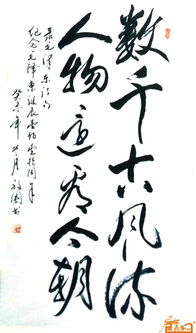 数千古风流
人物还看今朝
录毛泽东词句
纪念毛泽东诞辰壹佰壹拾周年
癸未年